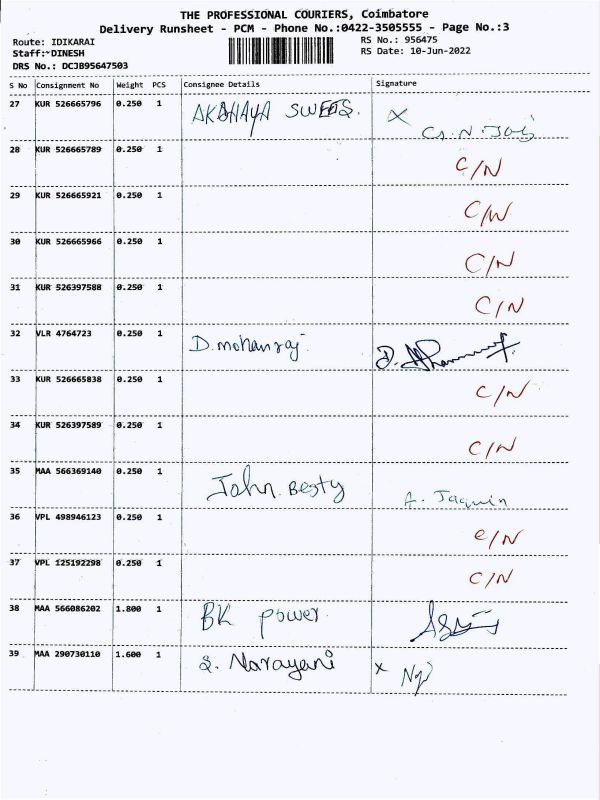 THE PROFESSIONAL COURIERS, Coimbatore
Delivery Runsheet - PCM - Phone No.:0422-3505555 - Page No.:3
Route: IDIKARAI RS No.: 956475
Staff:~DINESH RS Date: 10-Jun-2022
DRS No.: DCJB95647503
S No Consignment No Weight PCS Consignee Details Signature
27 KUR 526665796 0.250 1 AKSHAYA SWEETS. X
28 KUR 526665789 0.250 1 C/N
29 KUR 526665921 0.250 1 C/N
30 KUR 526665966 0.250 1 C/N
31 KUR 526397588 0.250 1 C/N
32 VLR 4764723 0.250 1 D.mohanraj
33 KUR 526665838 0.250 1 C/N
34 KUR 526397589 0.250 1 C/N
35 MAA 566369140 0.250 1 John. Besty A. Jaquin
36 VPL 498946123 0.250 1 C/N
37 VPL 125192298 0.250 1 C/N
38 MAA 566086202 1.800 1 BK power
39 MAA 290730110 1.600 1 S. Narayani X